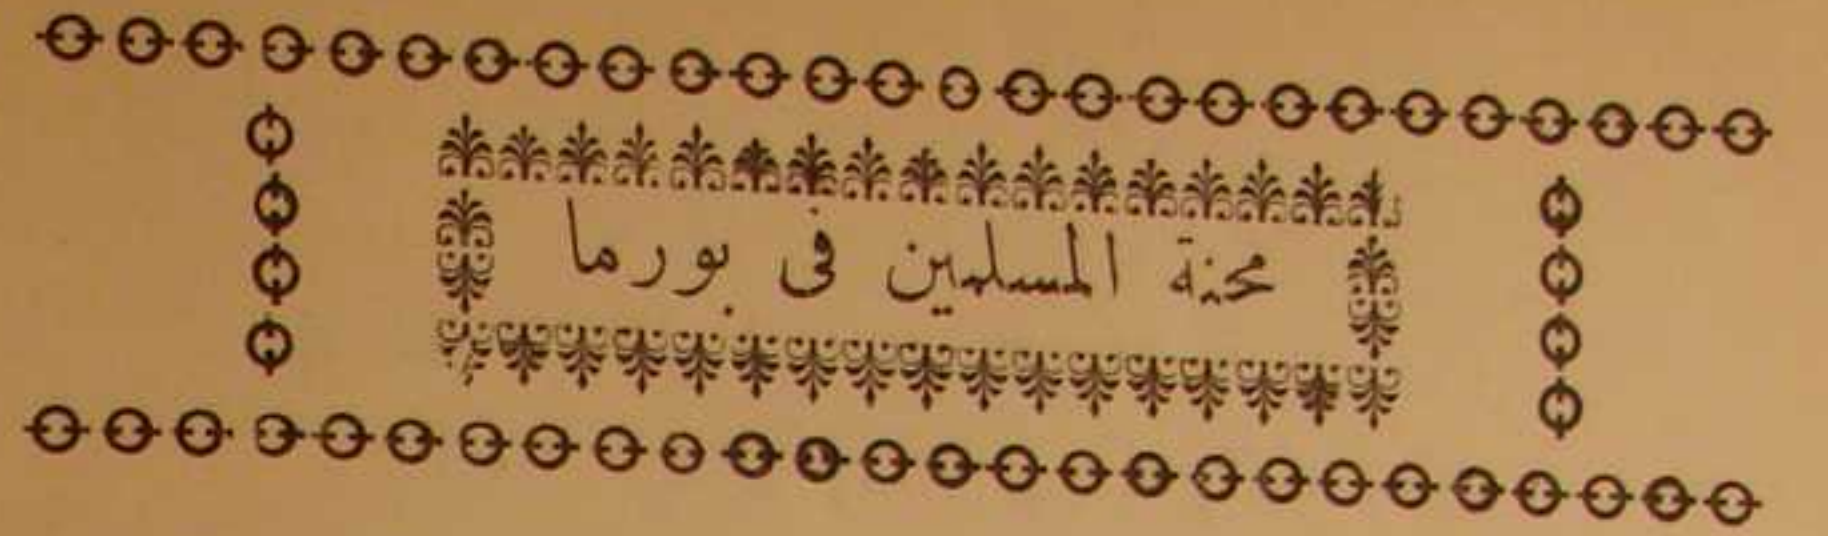 محنة المسلمين فى بورما